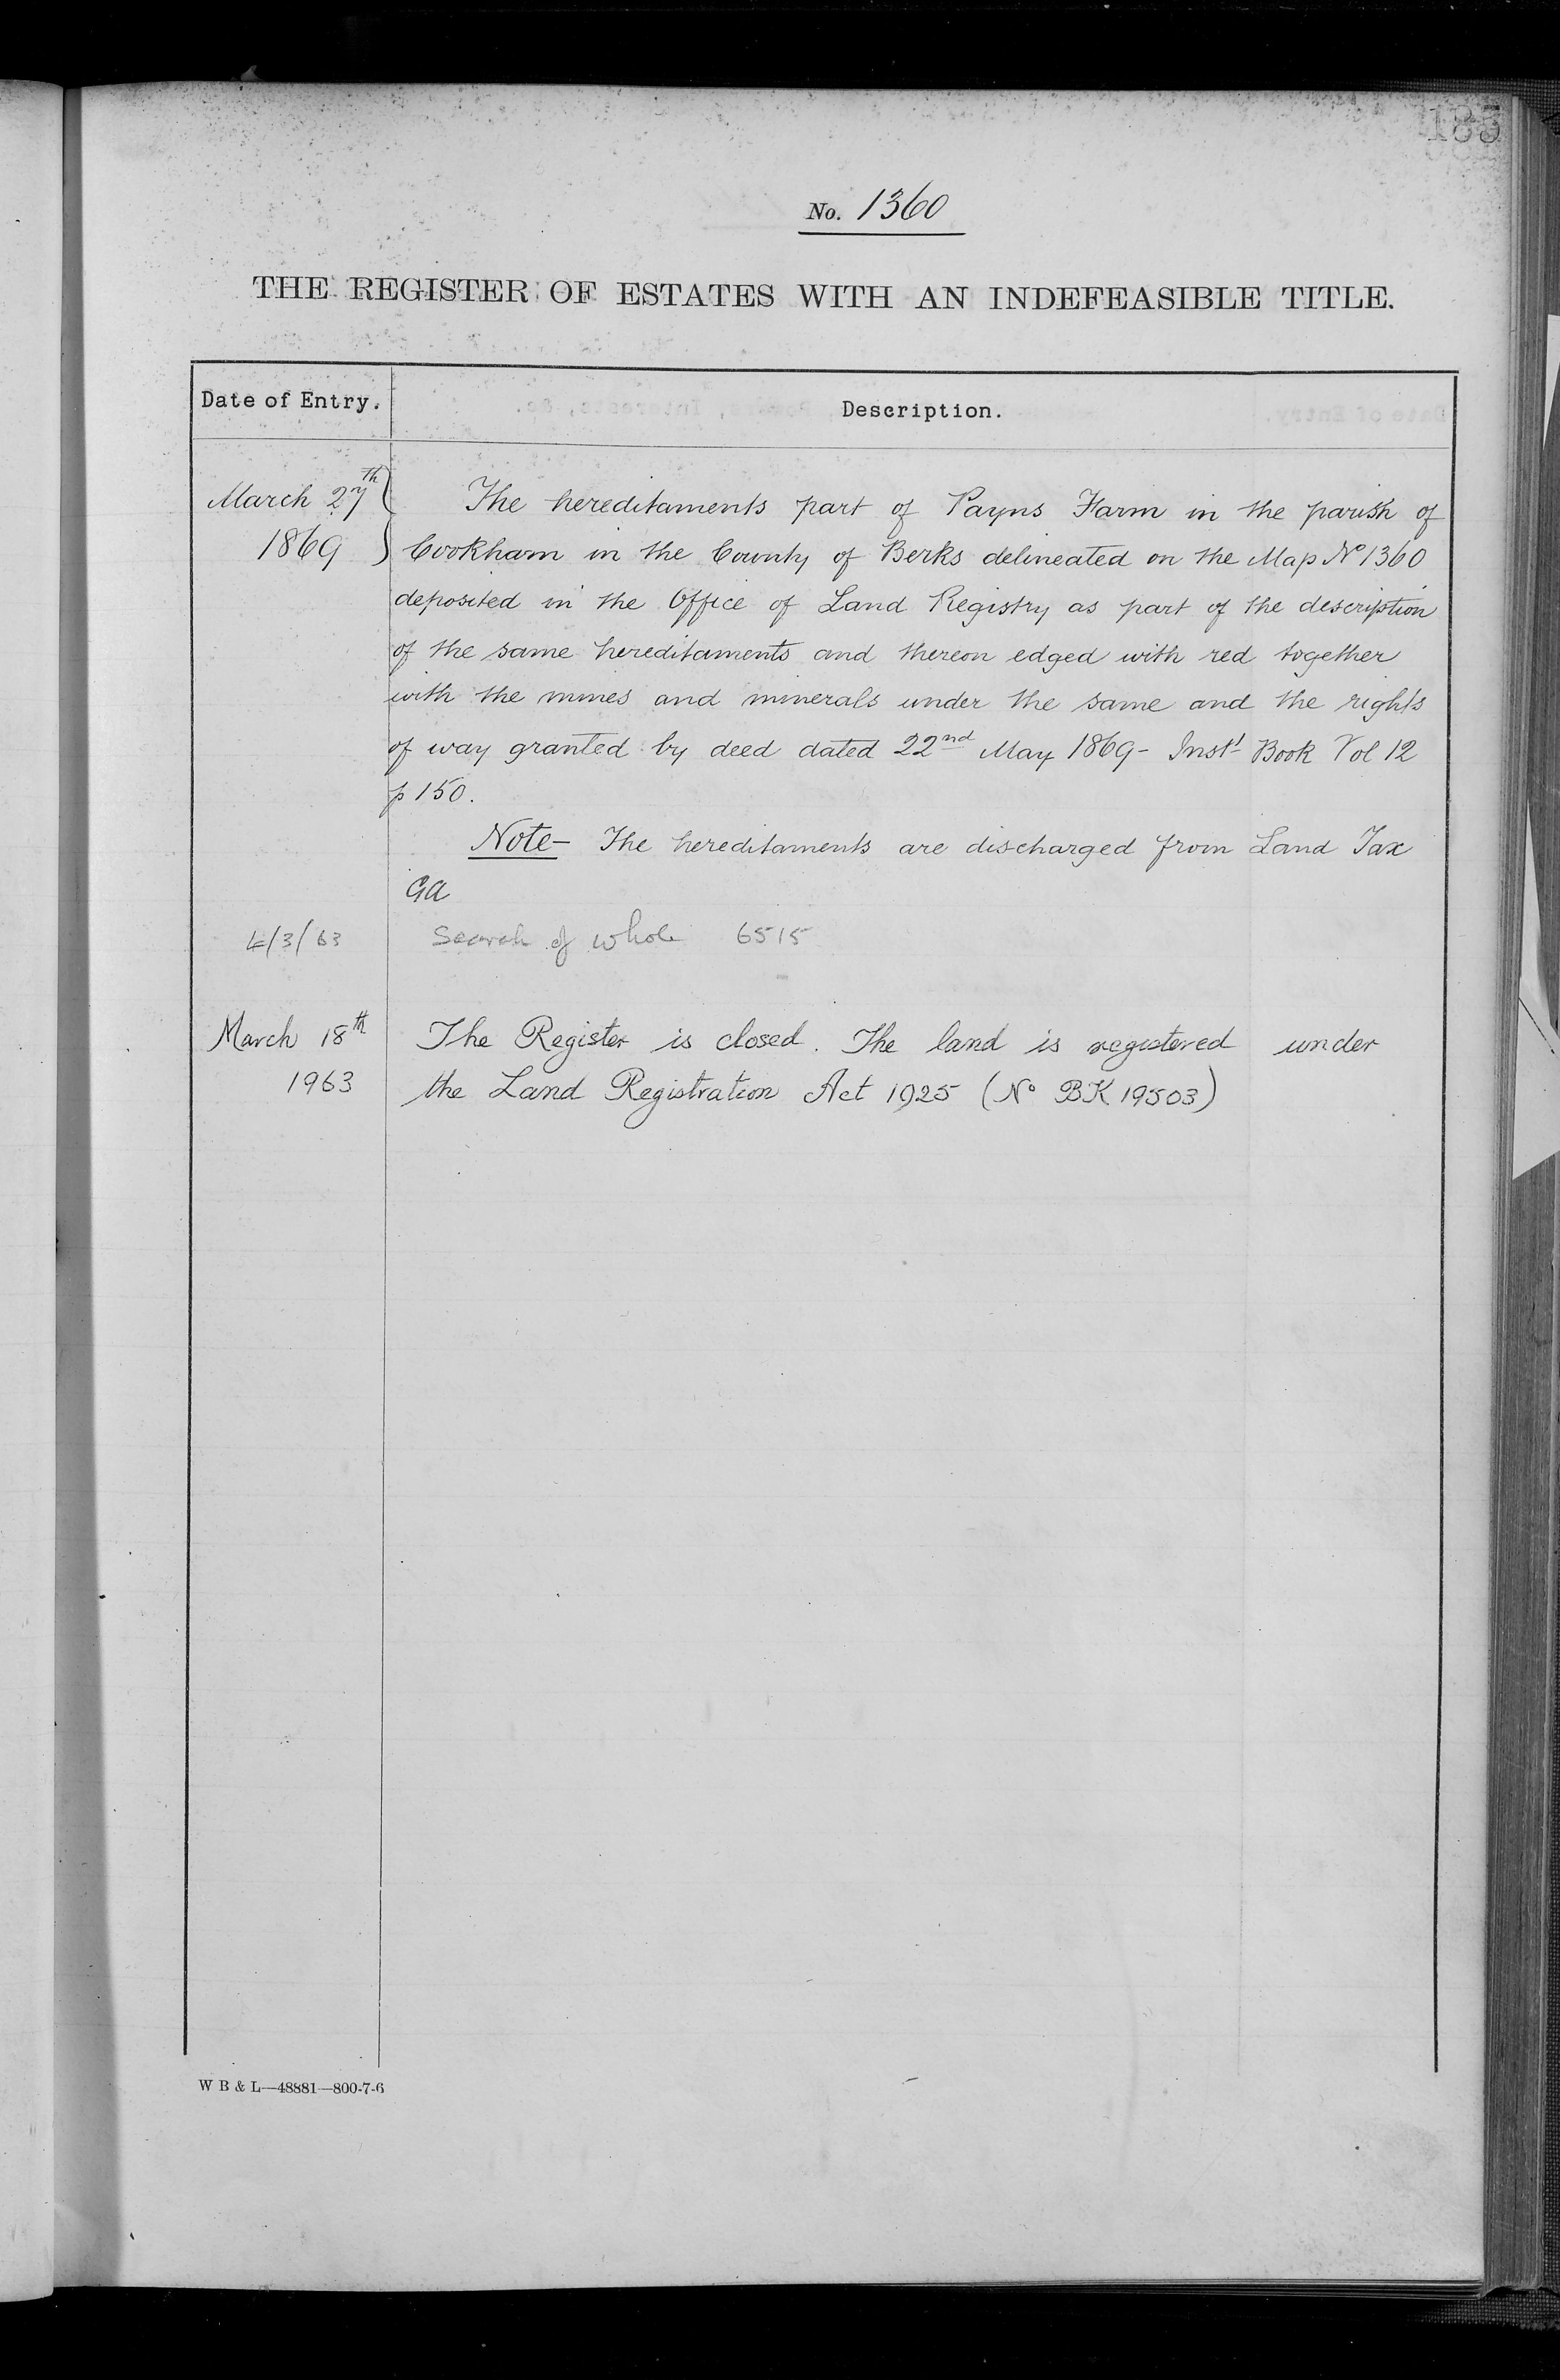 185
No. 1360
THE REGISTER OF ESTATES WITH AN INDEFEASIBLE TITLE.
Date of Entry. Description.
March 27th The hereditaments part of Payns Farm in the parish of
1869 Cookham in the County of Berks delineated on the Map No 1360
deposited in the Office of Land Registry as part of the description
of the same hereditaments and thereon edged with red together
with the mines and minerals under the same and the rights
of way granted by deed dated 22nd May 1869 - Inst. Book Vol 12
p 150.
Note - The hereditaments are discharged from Land Tax
GA
4/3/63 Search of whole 6515
March 18th The Register is closed. The land is registered under
1963 the Land Registration Act 1925 (No BK 19503)
W B & L—48881—800-7-6